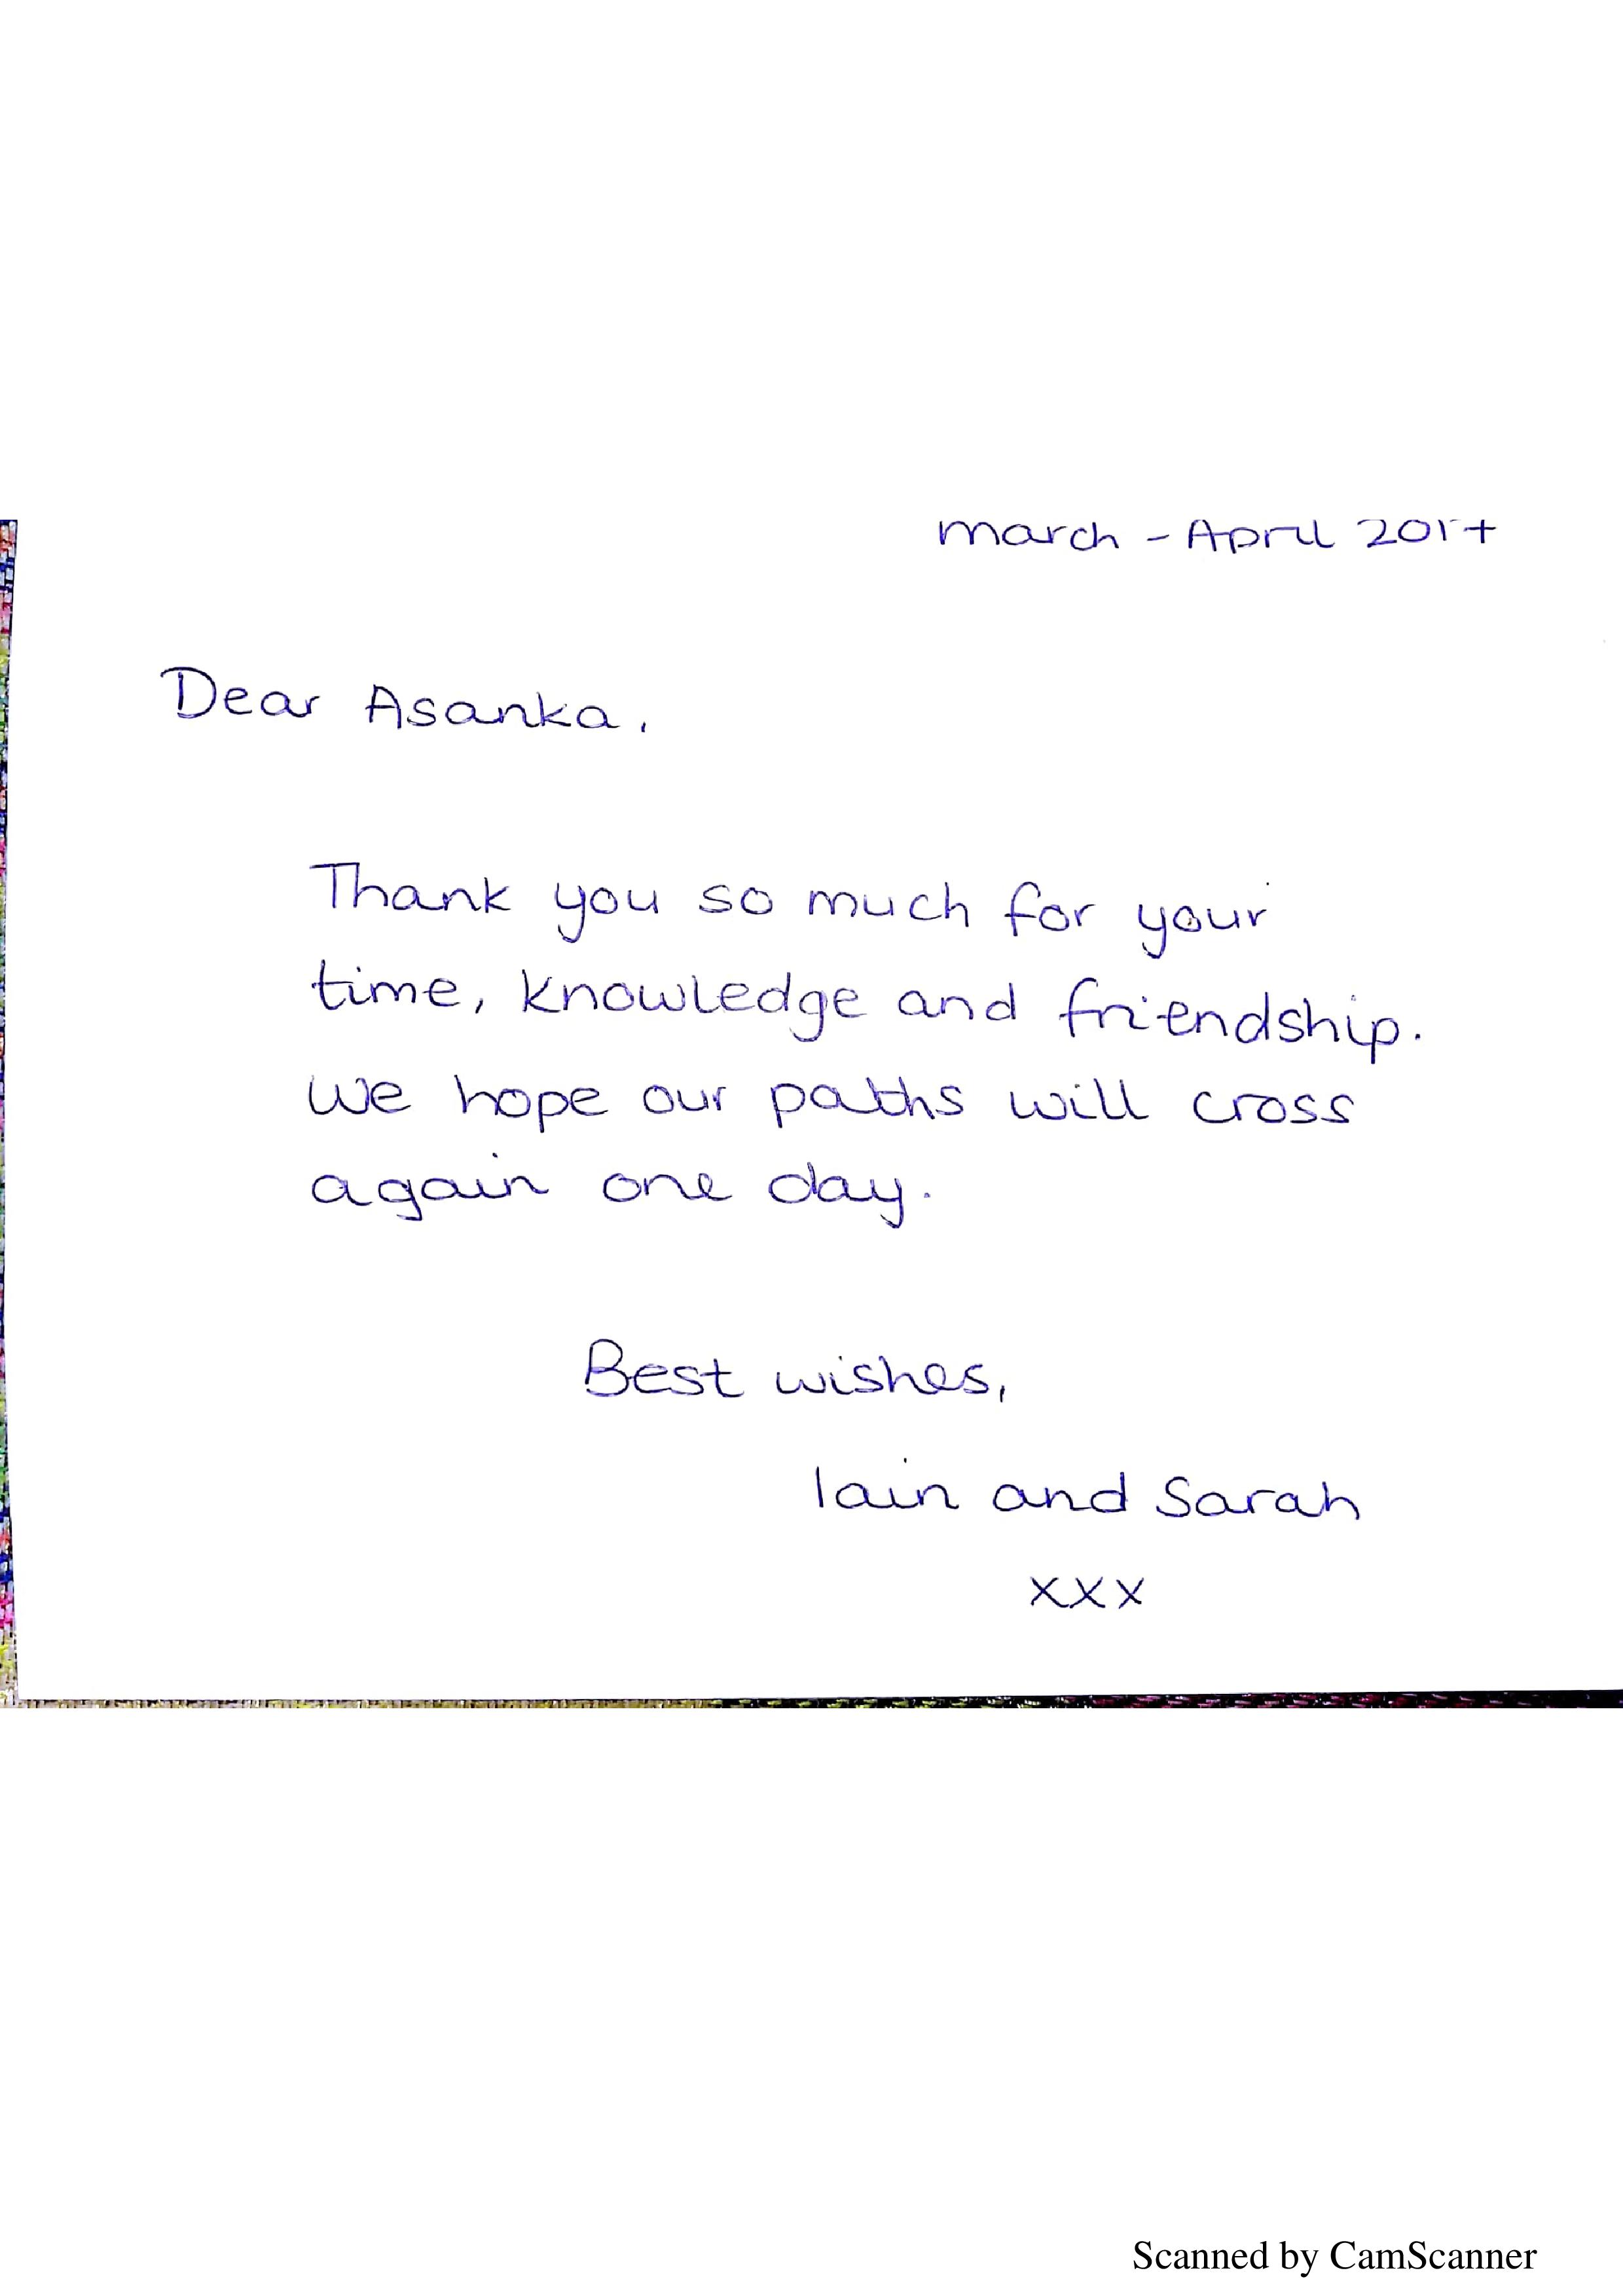 March - April 201
Dear Asanka,
Thank you so much for your
time, knowledge and friendship.
We hope our paths will cross
again one day.
Best wishes,
Iain and Sarah
xxx
Scanned by CamScanner